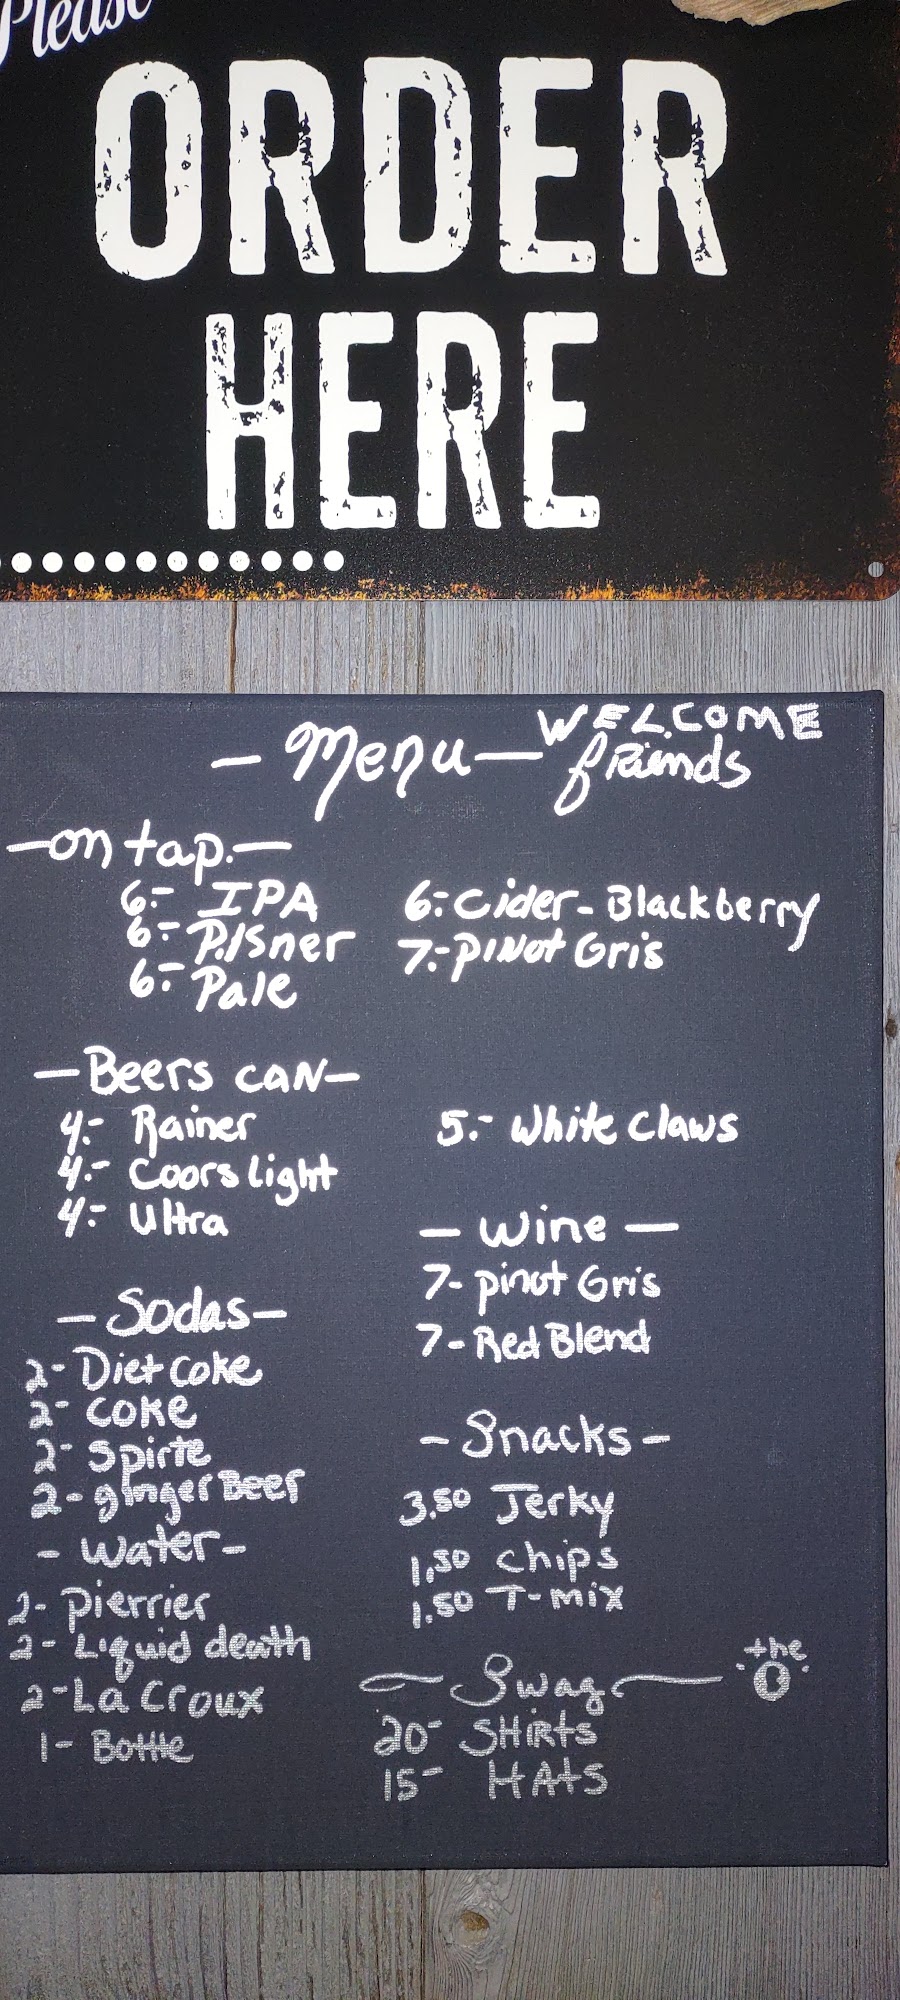 Please
ORDER
HERE
- Menu -
WELCOME
friends
- on tap. -
6.- IPA
6.- Pilsner
6.- Pale
6.- Cider - Blackberry
7.- Pinot Gris
- Beers can -
4.- Rainer
4.- Coors Light
4.- Ultra
5.- White Claws
- Wine -
7- pinot Gris
7- Red Blend
- Sodas -
2- Diet Coke
2- Coke
2- Spirte
2- ginger Beer
- Water -
2- Pierrier
2- Liquid death
2- La Croux
1- Bottle
- Snacks -
3.50 Jerky
1.50 Chips
1.50 T-mix
Swag
the
O
20- SHIRTS
15- HATS